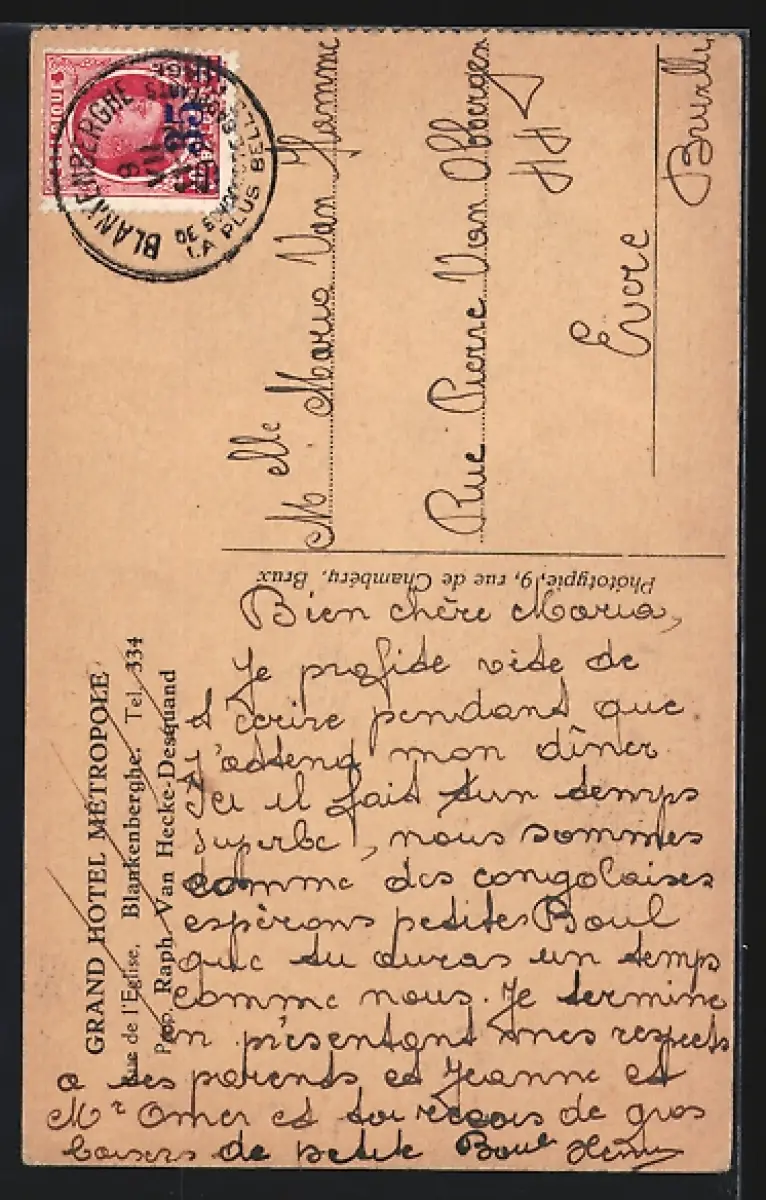 BLANKENBERGHE
LA PLUS BELLE
Melle Maria Van
Rue Pierre Van Obbergen
44
Evere
Bruxelles
Phototypie, 9, rue de Chambéry, Brux
GRAND HOTEL MÉTROPOLE
Rue de l'Eglise, Blankenberghe. Tel. 334
Prop. Raph. Van Hecke-Desquand
Bien chère Maria,
Je profite vite de
t'écrire pendant que
j'attend mon dîner
Ici il fait un temps
superbe, nous sommes
comme des congolaises
espèrons petites Boul
que tu auras un temps
comme nous. Je termine
en présentant mes respects
a tes parents et Jeanne et
Mr Omer et toi reçois de gros
baisers de petite Boule